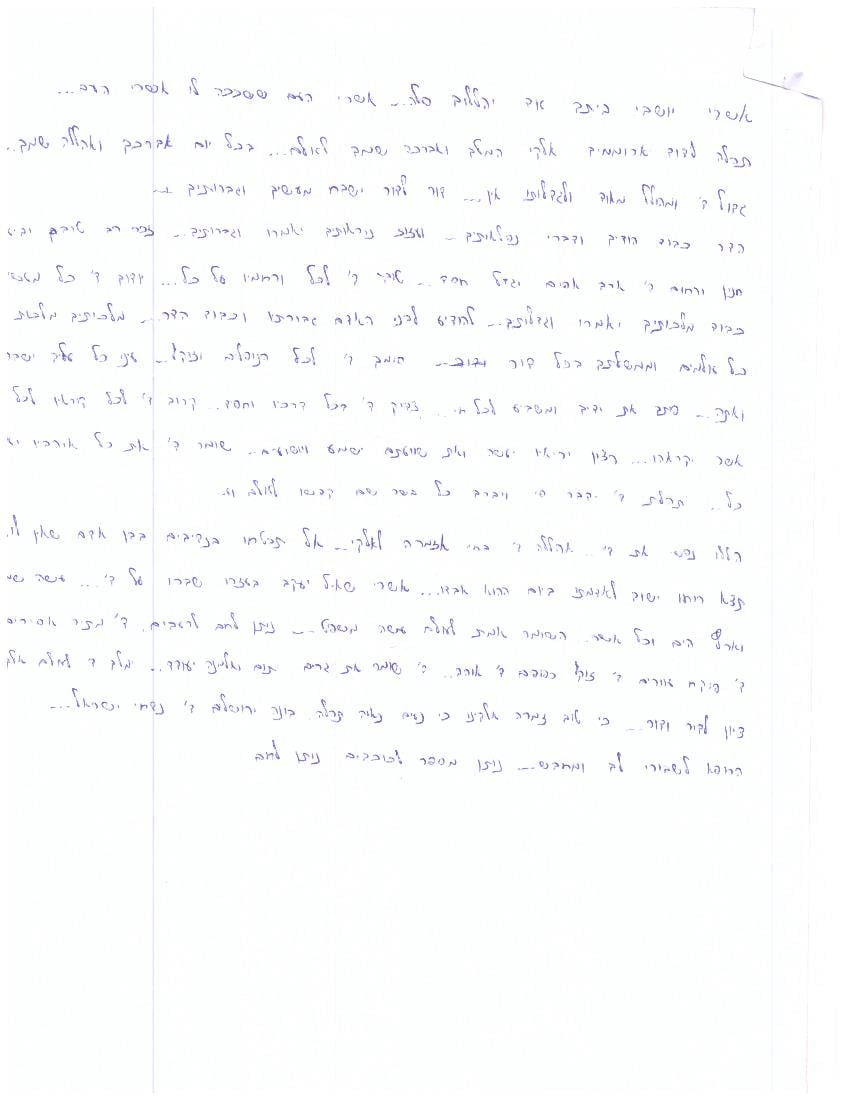 אשרי יושבי ביתך עוד יהללוך סלה... אשרי העם שככה לו אשרי העם...
תהלה לדוד ארוממך אלקי המלך ואברכה שמך לעולם... בכל יום אברכך ואהללה שמך..
גדול ד' ומהולל מאוד ולגדלותו אין... דור לדור ישבח מעשיך וגבורותיך ...
הדר כבוד הודיך ודברי נפלאותיך.. ועזוז נוראותיך יאמרו וגבורותיך... זכר רב טובך
חנון ורחום ד' ארך אפים וגדל חסד.. טוב ד' לכל ורחמיו על כל... ד' כל
כבוד מלכותיך יאמרו וגדלותך... להודיע לבני האדם גבורתו וכבוד הדר... מלכותיך מלכות
כל עולמים וממשלתך בכל דור ודור... סומך ד' לכל הנופלים וזוקף... עיני כל אליך ישבר
ואתה... פותח את ידיך ומשביע לכל חי... צדיק ד' בכל דרכיו וחסד.. קרוב ד' לכל קוראיו לכל
אשר יקראהו... רצון יריאיו יעשה ואת שוועתם ישמע ויושיעם.. שומר ד' את כל אוהביו
כל.. תהלת ד' ידבר פי ויברך כל בשר שם קדשו לעולם
הללי נפשי את ד'.. אהללה ד' בחיי אזמרה לאלקי... אל תבטחו בנדיבים בבן אדם שאין לו.
תצא רוחו ישוב לאדמתו ביום ההוא אבדו... אשרי שאל יעקב בעזרו שברו על ד'... עושה
וארץ הים וכל אשר. השומר אמת לעולם עושה משפט... נותן לחם לרעבים. ד' מתיר אסירים
ד' פוקח עוורים ד' זוקף כפופים ד' אוהב.. ד' שומר את גרים יתום ואלמנה יעודד.. ימלך ד' לעולם
ציון לדור ודור... כי טוב זמרה אלקינו כי נעים נאוה תהלה. בונה ירושלים ד' נדחי ישראל...
הרופא לשבורי לב ומחבש... מונה מספר לכוכבים נותן לחם